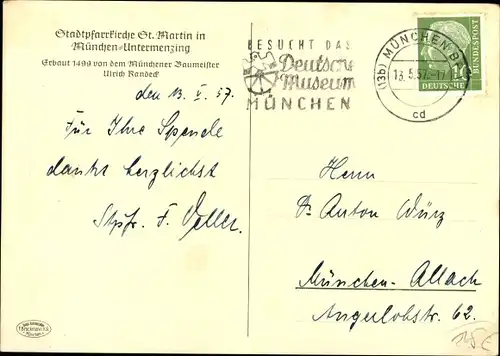 Stadtpfarrkirche St. Martin in
München-Untermenzing
Erbaut 1499 von dem Münchener Baumeister
Ulrich Randeck
BESUCHT DAS
Deutsche
Museum
MÜNCHEN
(13b) MÜNCHEN B
13.5.57.-17
cd
BUNDESPOST
DEUTSCHE
den 13. V. 57.
Für Ihre Spende
dankt herzlichst
Stpfr. F. Veller.
Herrn
Dr Anton Würz
München-Allach
Angerlohstr. 62.